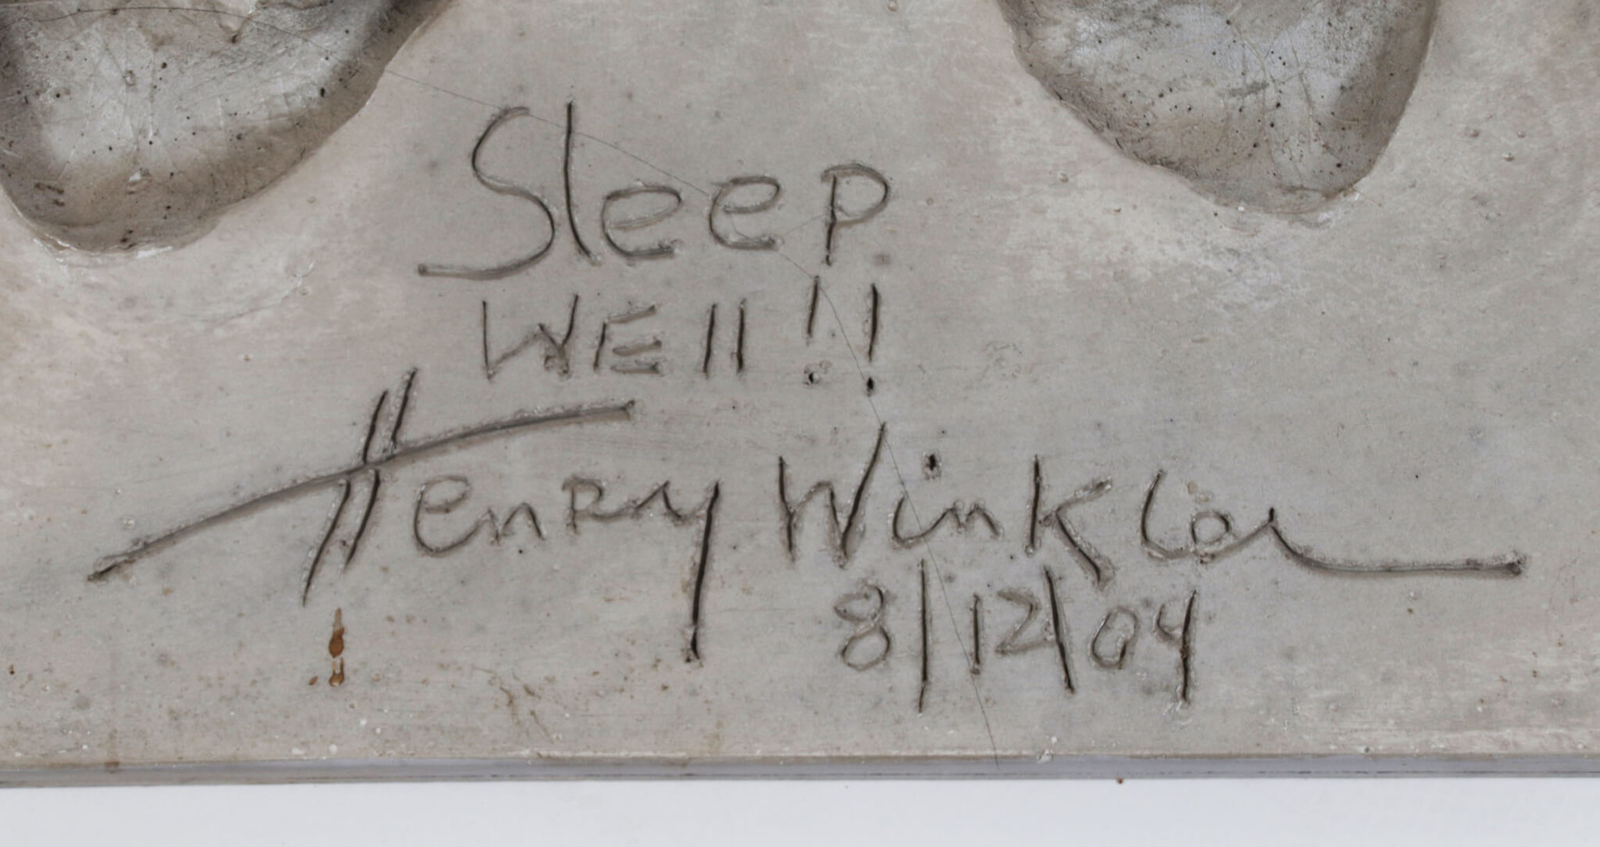 Sleep
WEll!!
Henry Winkler
8/12/04